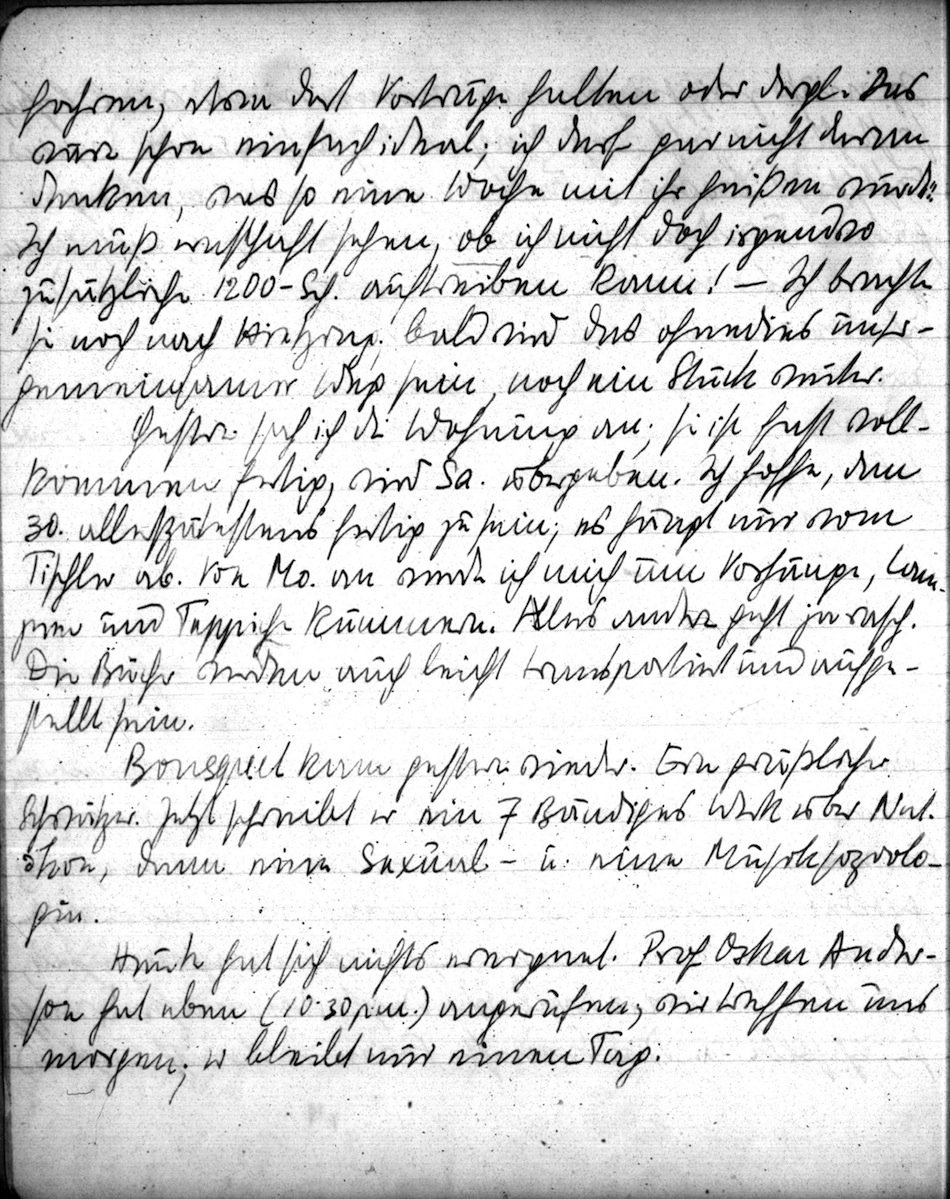 fahren, etwa dort Vorträge halten oder dergl. Das
wäre schon einfach ideal; ich darf gar nicht daran
denken, was so eine Woche mit ihr heißen würde.
Ich muß ernsthaft sehen, ob ich nicht doch irgendwo
zusätzliche 1200-Sch. auftreiben kann! – Ich brachte
sie noch nach Hietzing; bald wird das ohnedies unser
gemeinsamer Weg sein, noch ein Stück weiter.
Gestern sah ich die Wohnung an; sie ist fast voll-
kommen fertig, wird Sa. übergeben. Ich hoffe, am
30. allerspätestens fertig zu sein; es hängt nur vom
Tischler ab. Von Mo. an werde ich mich um Vorhänge, Lam-
pen und Teppiche kümmern. Alles andere geht ja rasch.
Die Bücher werden auch leicht transportiert und aufge-
stellt sein.
Bousquet kam gestern wieder. Ein gräßlicher
Schwätzer. Jetzt schreibt er ein 7 Bändiges Werk über Nat.
ökon, dann eine Sexual- u. eine Musiksoziolo-
gie.
Heute hat sich nichts ereignet. Prof Oskar Ander-
son hat eben (10.30 p.m.) angerufen; wir treffen uns
morgen; er bleibt nur einen Tag.